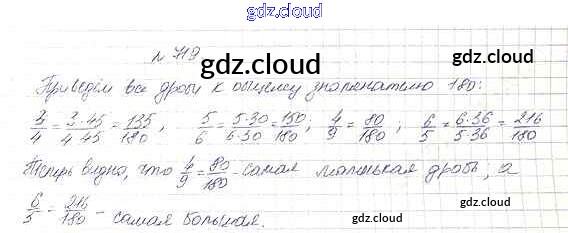 gdz.cloud
№ 719
gdz.cloud
Приведём все дроби к общему знаменателю 180:
3/4 = 3·45/4·45 = 135/180, 5/6 = 5·30/6·30 = 150/180; 4/9 = 80/180; 6/5 = 6·36/5·36 = 216/180
gdz.cloud gdz.cloud
Теперь видно, что 4/9 = 80/180 - самая маленькая дробь, а
6/5 = 216/180 - самая большая.
gdz.cloud
gdz.cloud